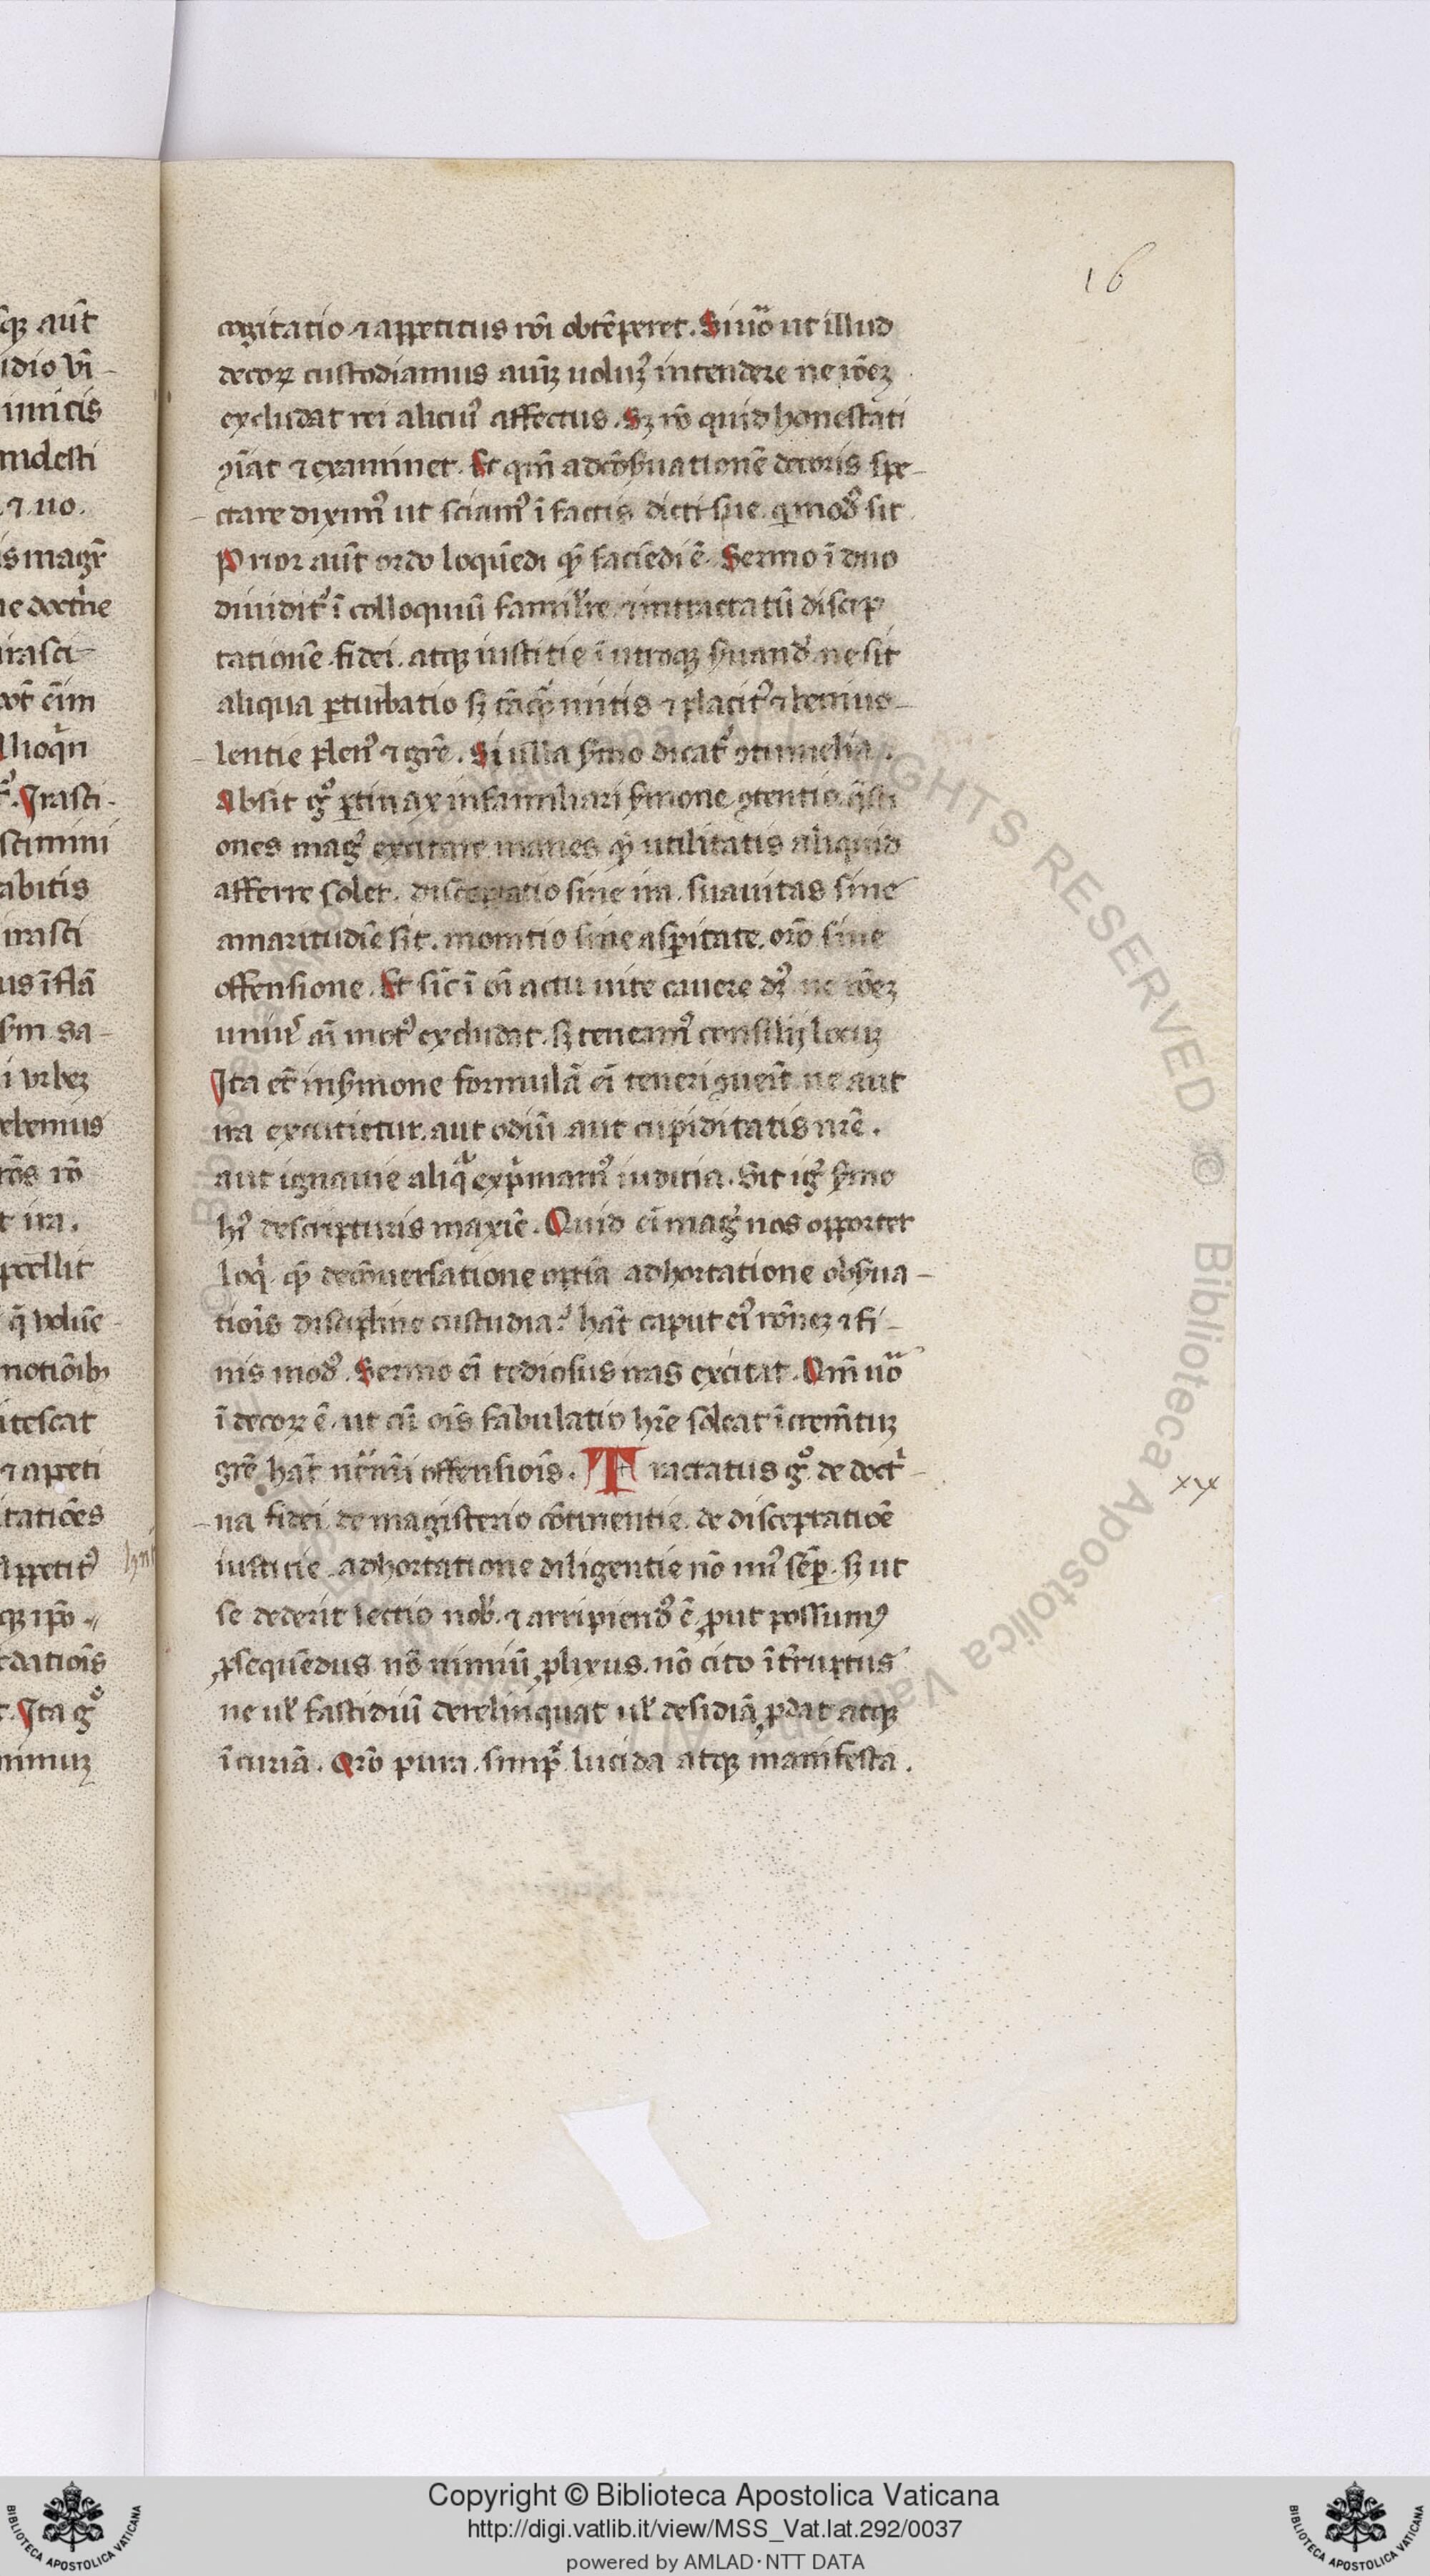 16
cogitatio ⁊ appetitus rōi obtēperet. Si uͦo ut illud
decoꝝ custodiamus auūꝫ uoluꝫ intendere ne rōeꝫ
excludat rei aliciuꝰ affectus. Sꝫ rō quid honestati
ꝯīat ⁊ examinet. Et qm̄ ad cōẜuationē decoris spe-
ctare diximꝰ ut sciamꝰ ī factis dictisue qͥ modꝰ sit
Prior aūt ordo loquēdi qͣꝫ faciēdi ē. Sermo ī duo
diuiditʳ ī colloquiū familʼre ⁊ in tractatū discep
tationē fidei atqꝫ iustitie ī utroqꝫ ẜuandꝰ ne sit
aliqua ꝑturbatio sꝫ tāqͣꝫ mitis ⁊ placitꝰ ⁊ beniuo-
lentie plenꝰ ⁊ grē. Si ulla ẜmo dicatʳ ꝯtumelia.
Absit gͦ ꝑtinax in familiari ẜmone ꝯtentio qͣsti
ones magꝭ excitare inanes qͣꝫ utilitatis aliquid
afferre solet. disceptatio sine ira. suauitas sine
amaritudīe sit. monitio sine asꝑitate. orō sine
offensione. Et sic̄ ī oī actu uite cauere dꝫ ne rōeꝫ
aī motꝰ excludat. sꝫ teneamꝰ consilij locuꝫ
Ita et̄ in ẜmone formulā eī teneri ꝯueīt ne aut
ira excitietur. aut odiū aut cupiditatis nrē.
aut ignauie aliqͣ expͥmamꝰ iudicia. Sit igʳ ẜmo
hꝰ de scripturis maxīe. Quid eī magꝭ nos opportet
loqͥ qͣꝫ de cōuersatione optīa adhortatione obẜua-
tiōis discipline custudia? hāt caput eiꝰ rōneꝫ ⁊ fi-
nis modꝰ. Sermo eī tediosus iras excitat. Qm̄ uͦo
ī decoꝝ ē. ut cū oīs fabulatio hr̄e soleat īcremētuꝫ
grē hāt offensiōis. Tractatus gͦ de doctͥ-
na fidei de magisterio cōtinentie. de disceptatiōe
iusticie. adhortatione diligentie nō sēꝑ. sꝫ ut
se dederit lectio nobꝭ. ⁊ arripiendꝰ ē ꝓut possumꝰ
ꝓsequēdus nō nimiū ꝓlixus. nō cito īt̄ruptus
ne ul̄ fastidiuī derelinquat ul̄ desidiā ꝓdat atqꝫ
īcuriā. Orō pura. simpͣ lucida atqꝫ manifesta.
xx
Copyright © Biblioteca Apostolica Vaticana
http://digi.vatlib.it/view/MSS_Vat.lat.292/0037
powered by AMLAD·NTT DATA